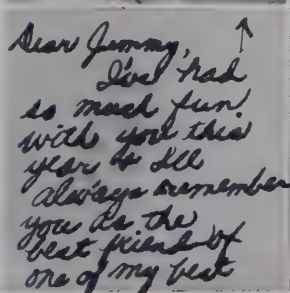 Dear Jimmy,
I've had
so much fun
with you this
year & I'll
always remember
you as the
best friend of
one of my best